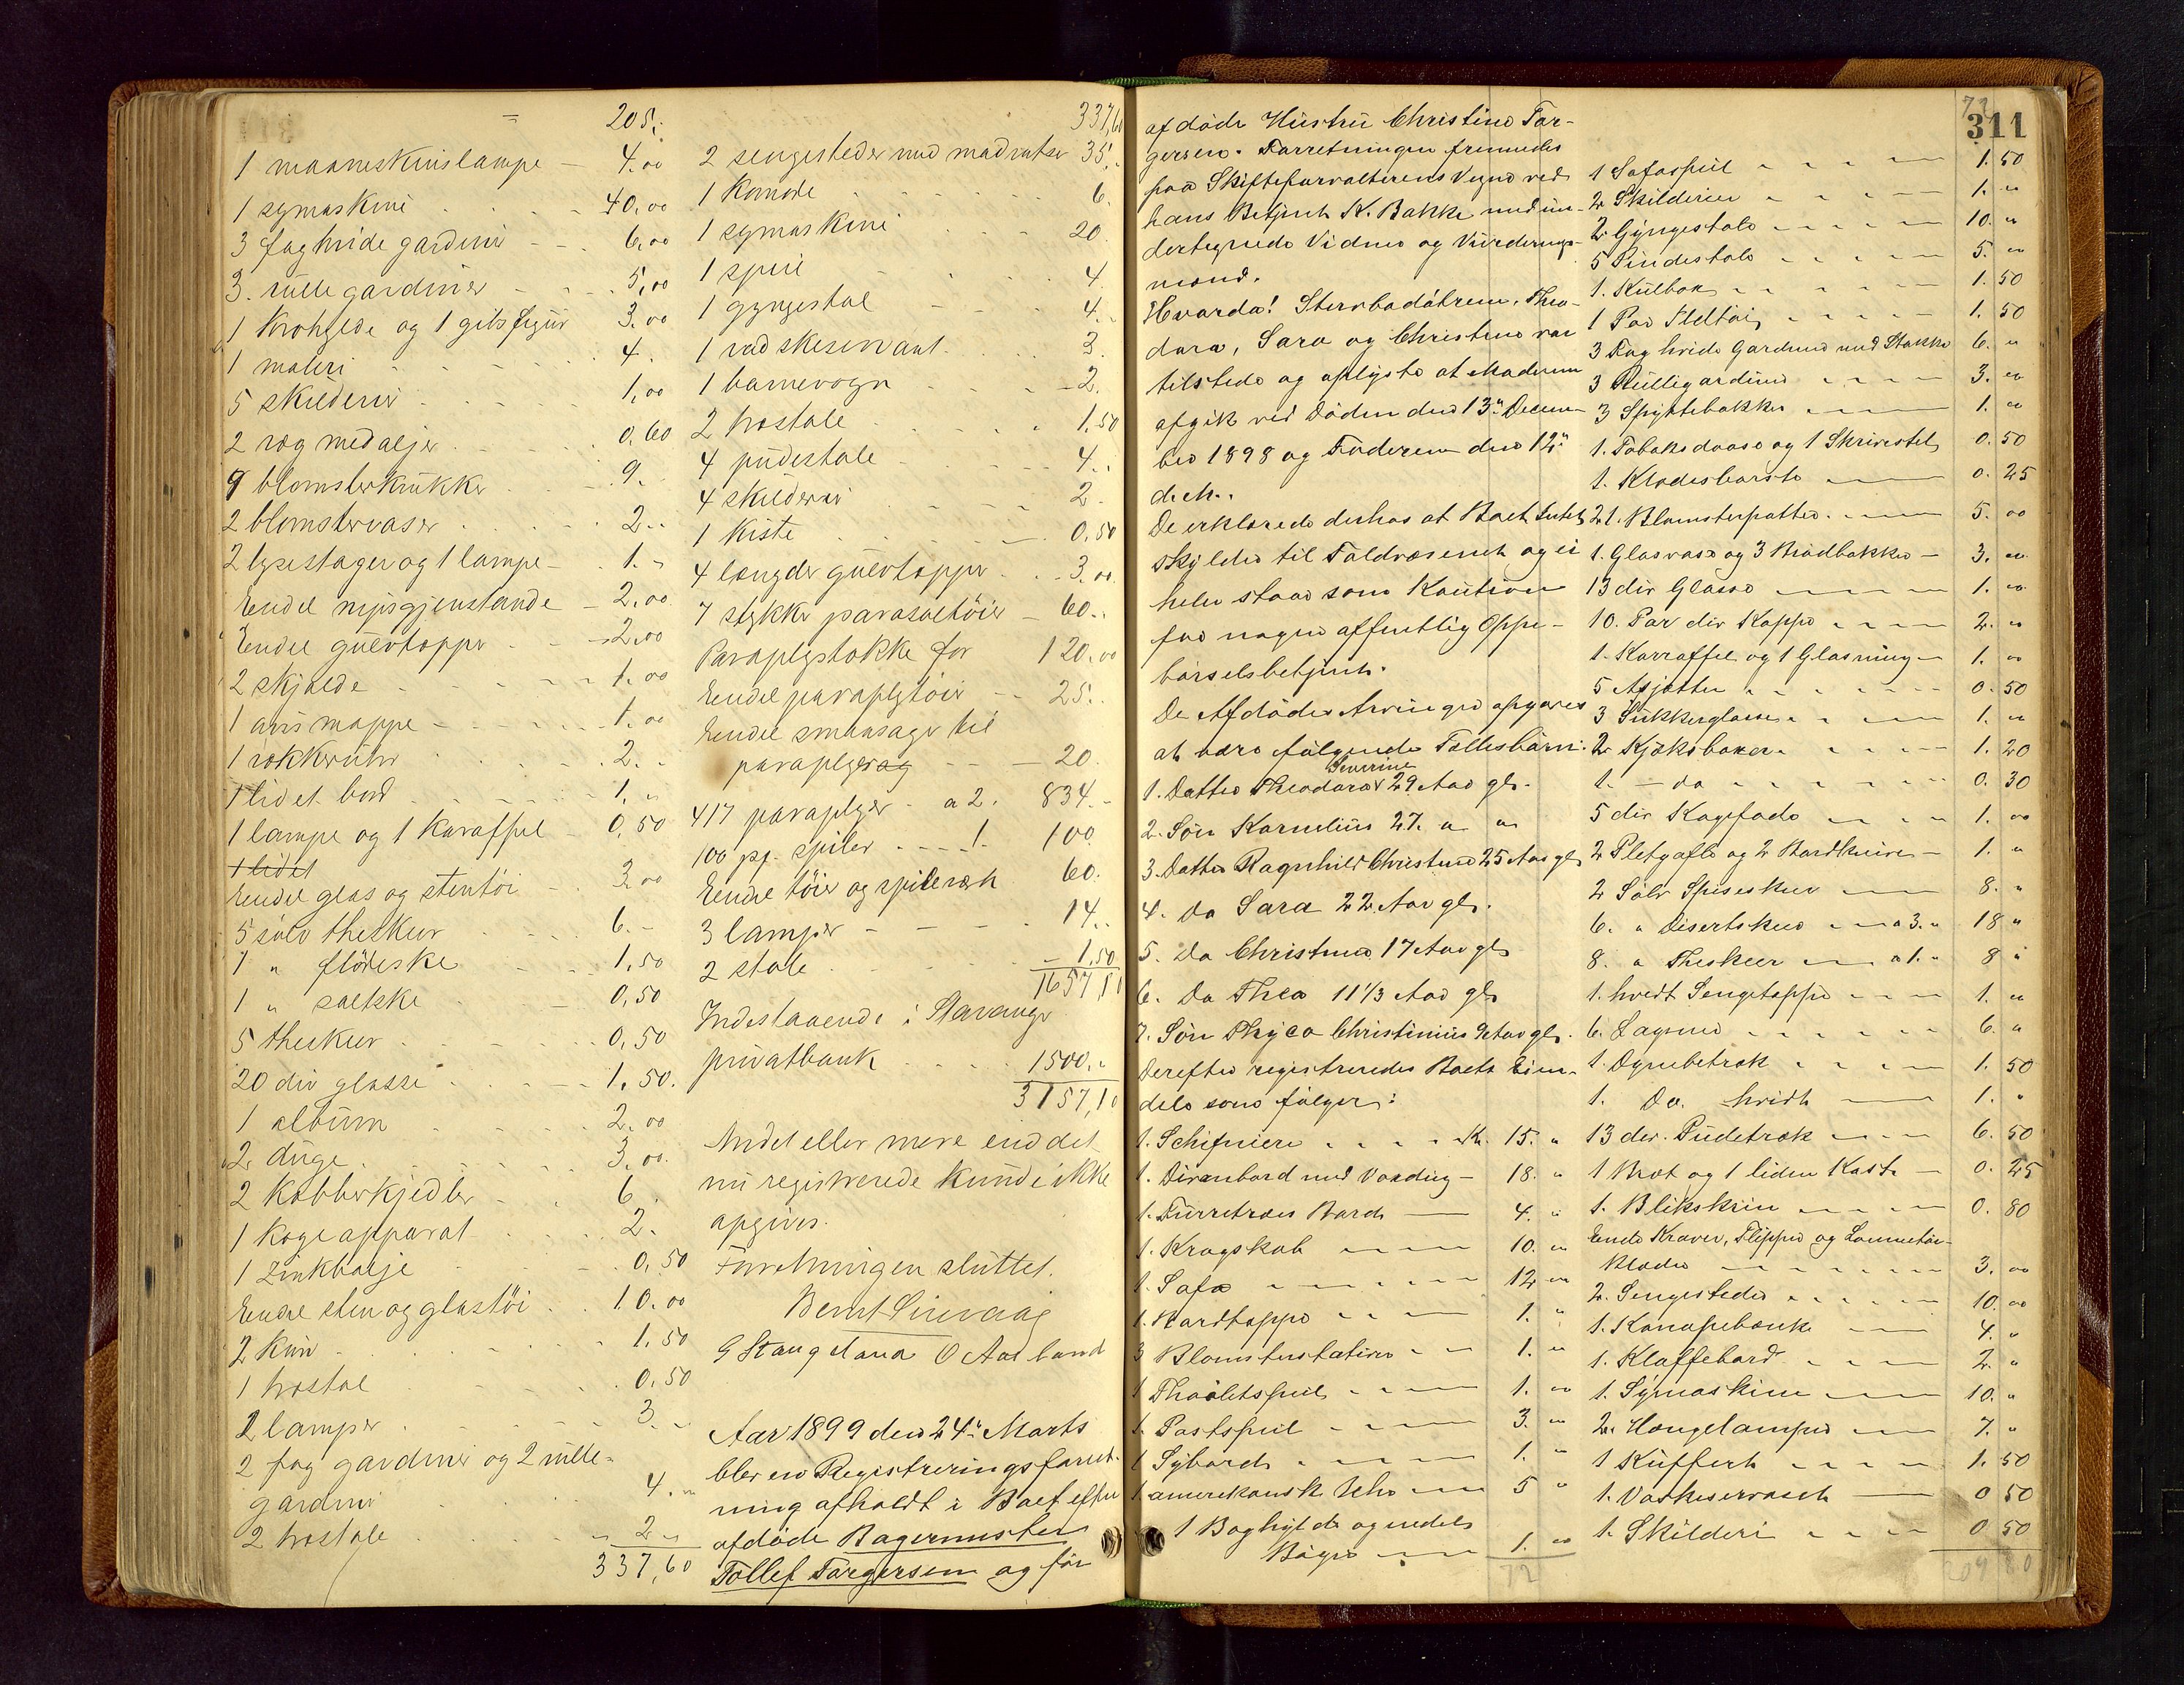 205,-
1 maaneskinslampe - 4.00
1 symaskine - 40,00
3 fag hvide gardiner - 6,00
3. rulle gardiner - 5,00
1 krohylde og 1 gibsfigur 3.00
1 maleri 4.
5 skilderier 1,00
2 væg medaljer 0,60
9 blomsterkrukker 9.
2 blomstervaser 2..
2 lysestager og 1 lampe - 1.
Endel nipsgjenstande - 2,00
Endel gulvtepper - 2,00
2 skjolde - 1.00
1 avismappe - 1.00
1 vækkeruhr 2.
1 lidet bord 1.
1 lampe og 1 karaffel - 0,50
1 lidet
Endel glas og stentöi - 3,00
5 sölv theskeer 6.-
1 " flödeske 1,50
1 " saltske 0,50
5 theskeer 0,50
20 div glasse 1,50.
1 album 2.00
2. duge 3,00.
2 kobberkjedler 6.
1 kogeapparat 2.
1 zinkbalje 0,50
Endel sten og glastöi 10.00
2 kurv 1.50
1 træstol 0.50
2 lamper 3.-
2 fag gardiner og 2 rulle-
gardiner 4.
2 træstole 2
337,60
337,60
2 sengesteder med madratser 35,-
1 Komode 6.
1 symaskine 20
1 speil 4.
1 gyngestol 4.
1 vadskeservant 3.
1 barnevogn 2.
2 træstole 1,50
4 pudestole 4..
4 skilderier 2.
1 kiste 0,50
4 længder gulvtepper 3.00.
7 stykker parasoltöier - 60.-
Paraplystokke for 120.00
Endel paraplytöier - 25.
Endel smaasager til
paraplyer og - 20.
417 paraplyer. a 2. 834.-
100 pf. spiler 1. 100.
Endel töier og spileræk 60.
3 lamper - 14.
2 stole 1.50
1657,10
Indestaaende i Stavanger
privatbank 1500.-
3157,10
Andet eller mere end det
nu registrerede kunde ikke
opgives.
Forretningen sluttet.
G Stangeland O Aaland
Aar 1899 den 24de Marts
blev en Registreringsforret-
ning afholdt i Boet efter
afdöde Bagermester
Tollef Torgersen og før
afdöde Hustru Christine Tor-
gersen. Forretningen fremmedes
paa Skifteforvalterens Vegne ved
hans Betjent K. Bakke med un-
dertegnede Vidner og Vurderings-
mænd.
Hvorda! Sterbodötrene, Theo-
dora, Sara og Christine var
tilstede og oplyste at Moderen
afgik ved Döden den 13de Decem-
ber 1898 og Faderen den 12te
ds.
De erklærede derhos at Boet Intet
skylder til Toldvæsenet og ei
heller staar som Kaution
for nogen offentlig Oppe-
börselsbetjent.
De Afdödes Arvinger opgaves
at være fölgende Fællesbörn:
1. Datter Theodora Severine 29 Aar gl.
2. Sön Kornelius 27. " "
3. Datter Ragnhild Christine 25 Aar gl
4. Do Sara 22 Aar gl.
5. Do Christine 17 Aar gl
6. Do Thea 11 1/3 Aar gl
7. Sön Thyco Christinius 9 Aar gl.
Derefter registreredes Boets Eien-
dele som fölger:
1. Schifniere Kr. 15. "
1. Divanbord med Voxdug - 18. "
1. Furretræes Bord - 4. "
1. Krogskab 10. "
1. Sofa 12 "
1. Bordteppe 1. "
3 Blomsterstativer 1. "
1 Thoiletspeil 1. "
1. Postspeil 3. "
1 Sybord 1. "
1. amerikansk Uhr 5 "
1 Boghylde og endel
Böger 1. "
72
72
311
1 Sofaspeil 1. 50
2 Skilderier 1. "
2 Gyngestole 10. "
5 Pindestole 5. "
1. Kulbox 1. 50
1 Par Steltöi 1. 50
3 Fag hvide Gardiner med Stokke 6. "
3 Rullegardiner 3. "
3 Spyttebakker 1. "
1. Tobaksdaase og 1 Skrivestel 0. 50
1. Klædesbörste 0. 25
21. Blomsterpotter 5. 00
1. Glasvase og 3 Brödbakker - 3. "
13 div Glasse 1. "
10. Par div Kopper 2. "
1. Karaffel og 1 Glasmugge 1. "
5 Asjetter 0. 50
3 Sukkerglasse 1. "
2 Kjæksboxer 1. 20
1. - do 0. 30
5 div Kagefade 1. 00
2 Pletgafler og 2 Bordknive - 1. "
2 Sölv Spiseskeer 8. "
6. " Desertskeer a 3. " 18 "
8. " Theskeer a 1. " 8 "
1. hvidt Sengeteppe 1. "
6. Lagener 6. "
1. Dynebetræk 1. 50
1. Do. hvidt 1. "
13 der. Pudetræk 6. 50
1 Bræt og 1 liden Kasse - 0. 25
1. Blikskrin 0. 80
Endel Kraver, Flipper og Lommetör-
klæder 3. 00
2. Sengesteder 10. 00
1. Kanapebænk 4. "
1. Klaffebord 2. "
1. Symaskine 10. "
2. Hængelamper 7. "
1 Kuffert 1. 50
1. Vaskeservant 0 50
1. Skilderi 0 50
209 80